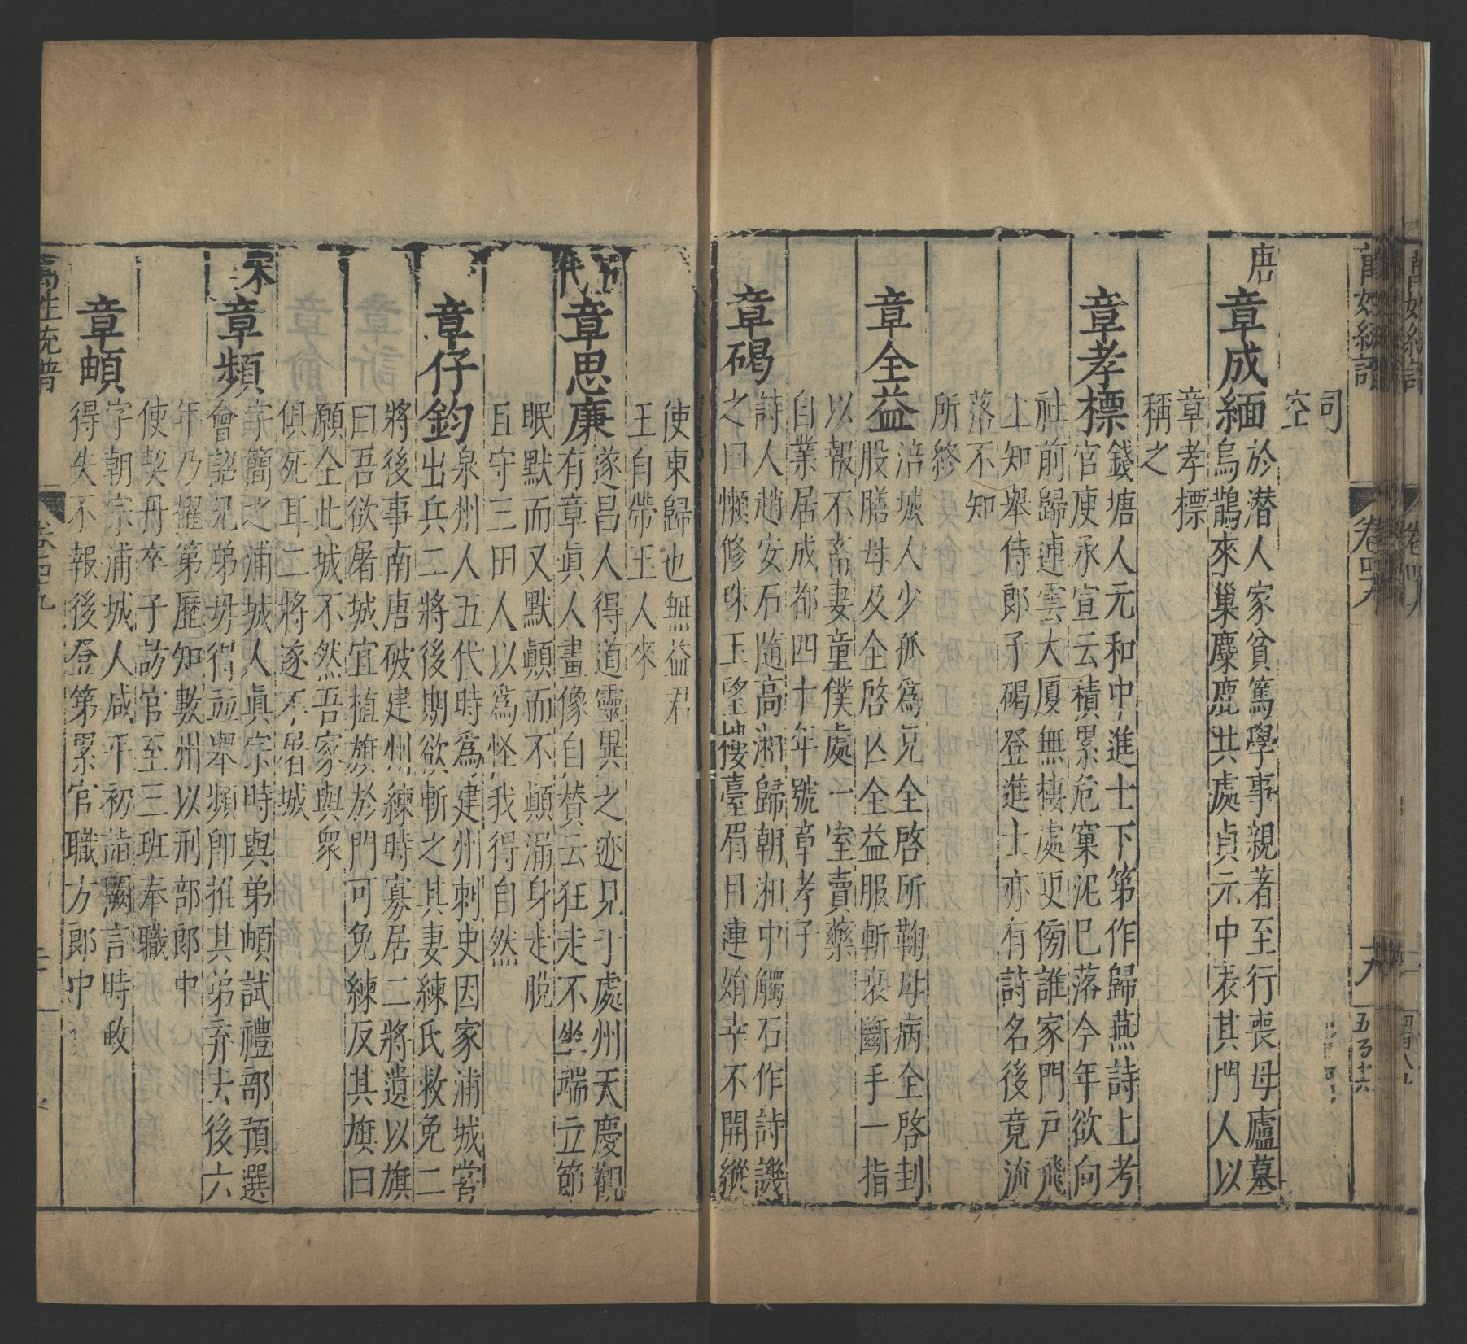 司
空
唐
章成緬
於潜人家貧篤學事親著至行喪母廬墓
烏鵲來巢麋鹿共處貞元中表其門人以
章孝標
稱之
章孝標
錢塘人元和中進士下第作歸燕詩上考
官庾承宣云積累危窠泥巳落今年欲向
社前歸連雲大厦無棲處更傍誰家門戸飛
上知舉侍郎子碣登進士亦有詩名後竟流
落不知
所終
章全益
涪城人少孤為兄全啓所鞠母病全啓刲
股膳母及全啓亡全益服斬衰斷手一指
以報不畜妻童僕處一室賣藥
自業居成都四十年號章孝子
章碣
詩人趙安石隨高湘歸朝湘中觸石作詩譏
之曰懶修珠玉望樓臺眉目連娟幸不開縱
使東歸也無益君
王自帶玉人來
五代
章思廉
遂昌人得道靈異之迹見于處州天慶觀
有章真人畫像自賛云狂走不坐端立節
眠默而又默顛而不顛漏身走脫
且守三田人以為怪我得自然
章仔鈞
泉州人五代時為建州刺史因家浦城嘗
出兵二將後期欲斬之其妻練氏救免二
將後事南唐破建州練時寡居二將遺以旗
曰吾欲屠城宜植旗於門可免練反其旗曰
願全此城不然吾家與衆
俱死耳二將遂不屠城
宋
章頻
字簡之浦城人真宗時與弟頔試禮部預選
會詔兄弟毋得並舉頻即推其弟弃去後六
年乃擢第歷知數州以刑部郎中
使契丹卒子訪官至三班奉職
章頔
字朝宗浦城人咸平初詣闕言時政
得失不報後登第累官職方郎中
萬姓統譜
卷四九